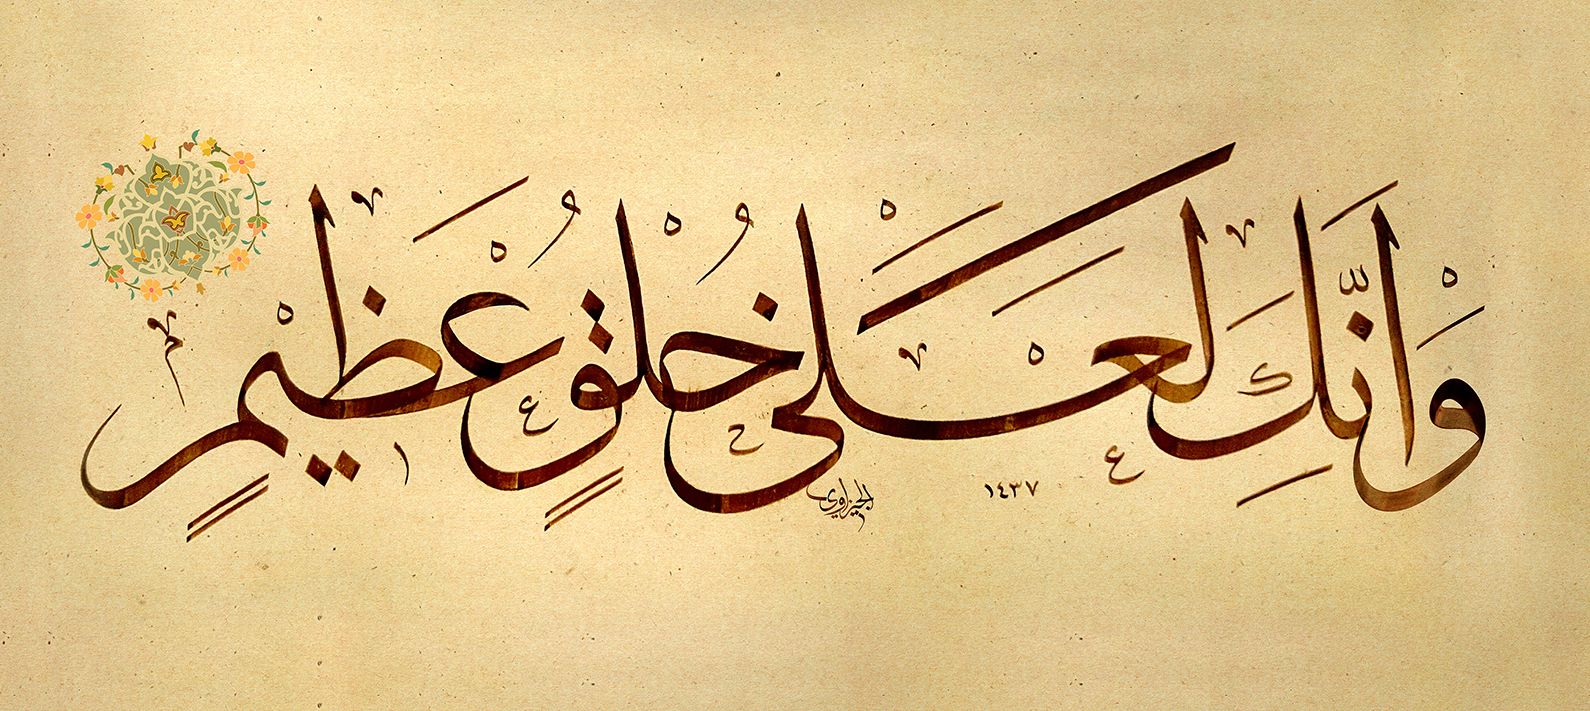 وَإِنَّكَ لَعَلَىٰ خُلُقٍ عَظِيمٍ
الجيزاوي
١٤٣٧